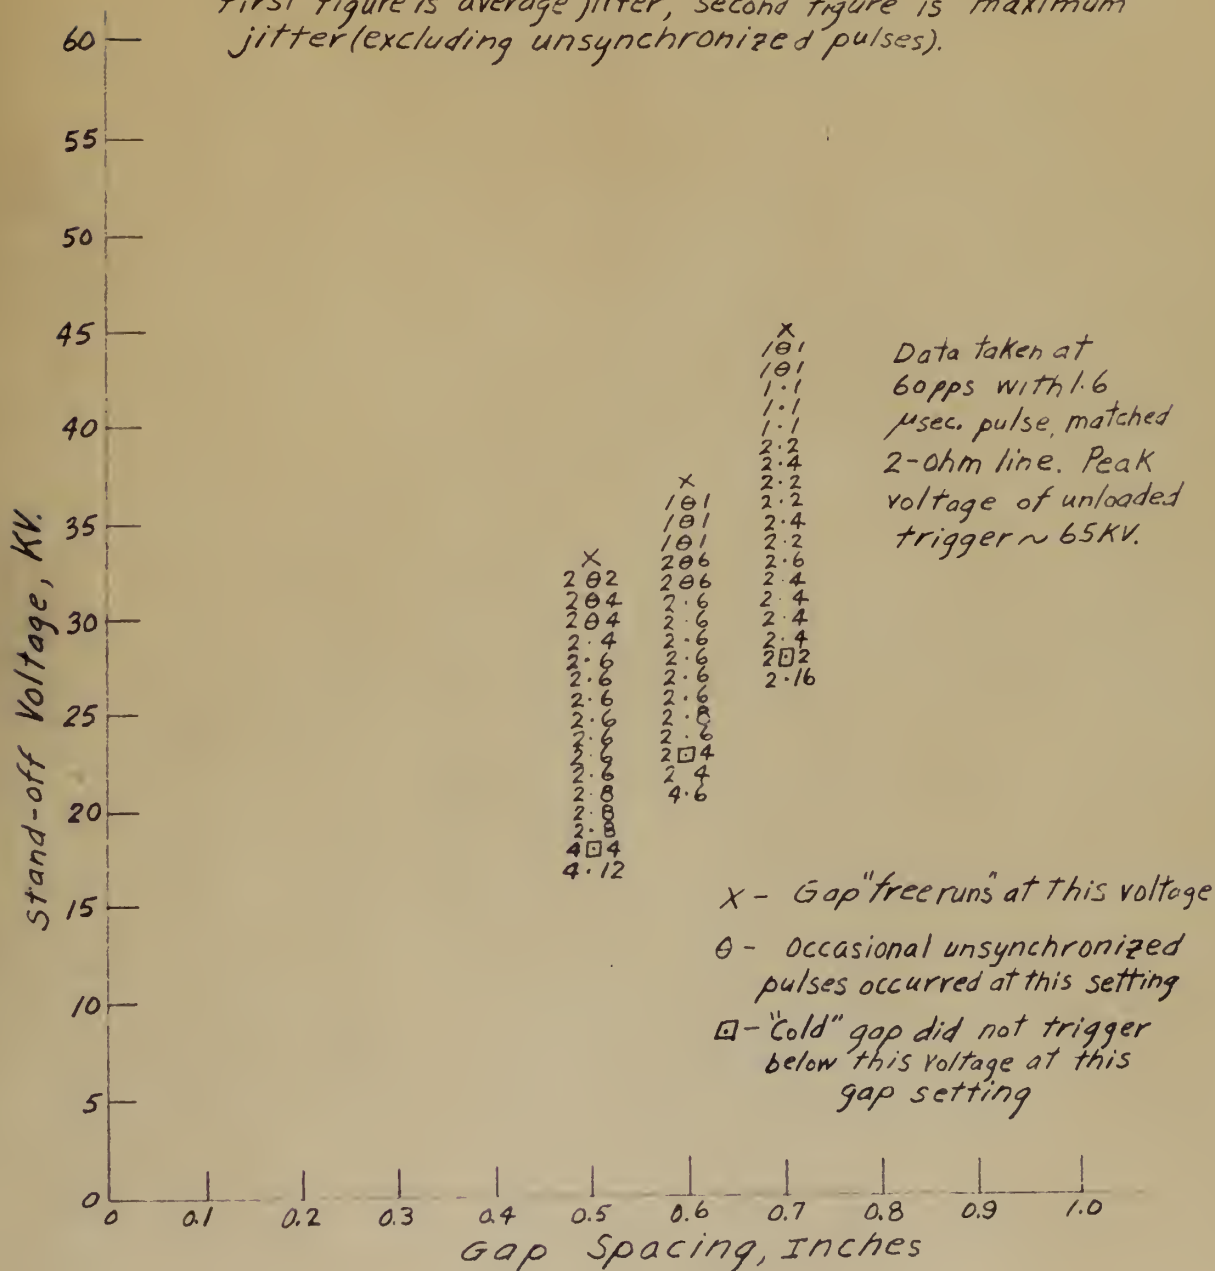 First figure is average jitter, second figure is maximum
jitter (excluding unsynchronized pulses).
60
55
50
45
40
35
30
25
20
15
10
5
0
Stand-off Voltage, KV.
X
1 θ 1
1 θ 1
1 · 1
1 · 1
1 · 1
2 · 2
2 · 4
2 · 2
2 · 2
2 · 4
2 · 2
2 · 6
2 · 4
2 · 4
2 · 4
2 · 4
2 ⊡ 2
2 · 16
X
1 θ 1
1 θ 1
1 θ 1
2 θ 6
2 θ 6
2 · 6
2 · 6
2 · 6
2 · 6
2 · 6
2 · 6
2 · 8
2 · 6
2 ⊡ 4
2 4
4 · 6
X
2 θ 2
2 θ 4
2 θ 4
2 · 4
2 · 6
2 · 6
2 · 6
2 · 6
2 · 6
2 · 6
2 · 6
2 · 8
2 · 8
2 · 8
4 ⊡ 4
4 · 12
Data taken at
60pps with 1.6
μsec. pulse, matched
2-ohm line. Peak
voltage of unloaded
trigger ~ 65KV.
X - Gap "free runs" at this voltage
θ - Occasional unsynchronized
pulses occurred at this setting
⊡ - "Cold" gap did not trigger
below this voltage at this
gap setting
0 0.1 0.2 0.3 0.4 0.5 0.6 0.7 0.8 0.9 1.0
Gap Spacing, Inches